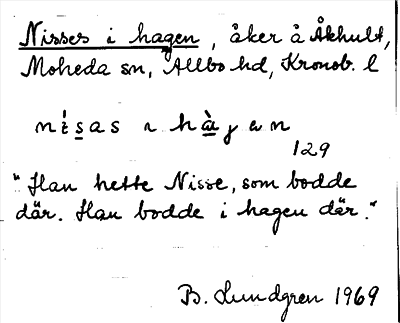 Nisses i hagen, åker å Åkhult,
Moheda sn, Allbo hd, Kronob. l
nisas ı hàgen
129
"Han hette Nisse, som bodde
där. Han bodde i hagen där."
B. Lundgren 1969